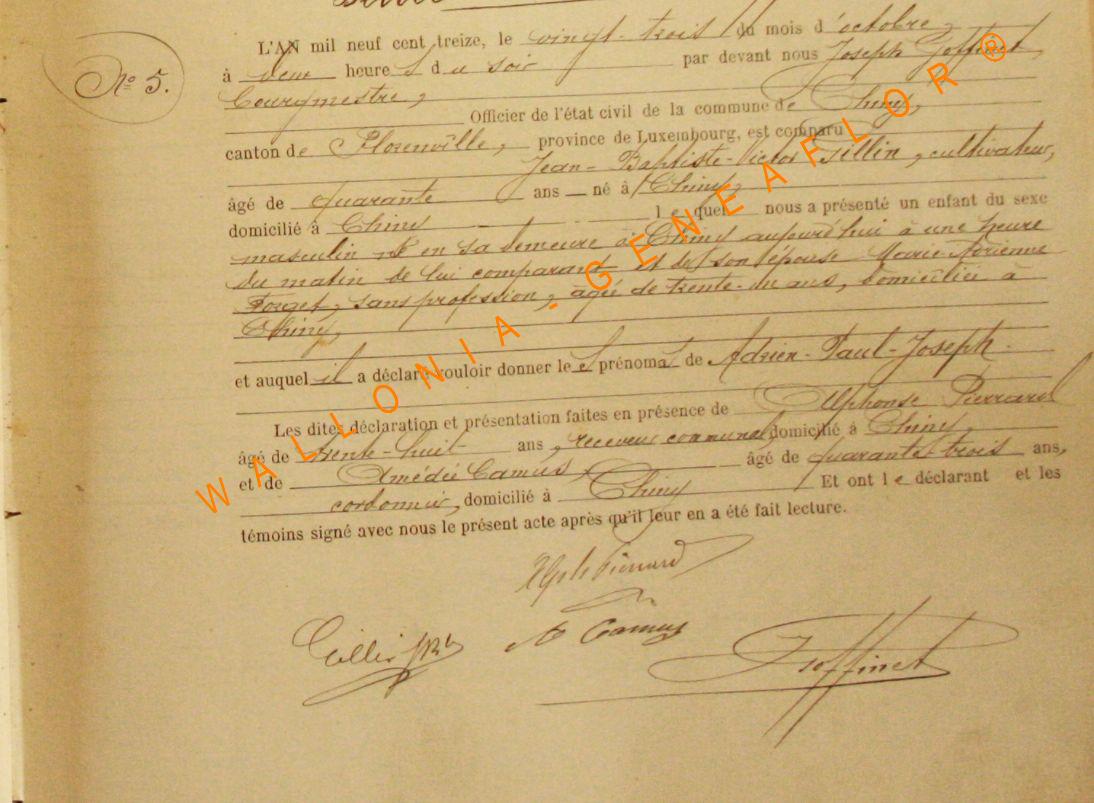 L'AN mil neuf cent treize, le vingt-trois du mois d'octobre,
à deux heures du soir par devant nous Joseph Goffinet
Bourgmestre,
Officier de l'état civil de la commune de Chiny,
canton de Florenville, province de Luxembourg, est comparu
Jean-Baptiste-Victor Gillin, cultivateur,
âgé de quarante ans né à Chiny,
domicilié à Chiny lequel nous a présenté un enfant du sexe
masculin né en sa demeure à Chiny aujourd'hui à une heure
du matin de lui comparant et de son épouse Marie Adrienne
Forget, sans profession, âgée de trente-un ans, domiciliée à
Chiny,
et auquel il a déclaré vouloir donner les prénoms de Adrien-Paul-Joseph.
Les dites déclaration et présentation faites en présence de Alphonse Pierrard
âgé de trente-huit ans, receveur communal, domicilié à Chiny,
et de Amédée Camus, âgé de quarante-trois ans,
cordonnier, domicilié à Chiny Et ont le déclarant et les
témoins signé avec nous le présent acte après qu'il leur en a été fait lecture.
Pierrard
A Camus
JGoffinet
N° 5.
WALLONIA - GENEAFLOR®